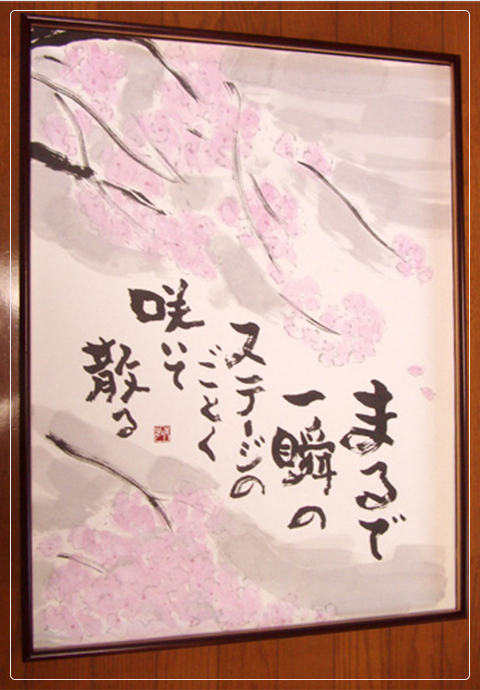 まるで
一瞬の
ステージの
ごとく
咲いて
散る